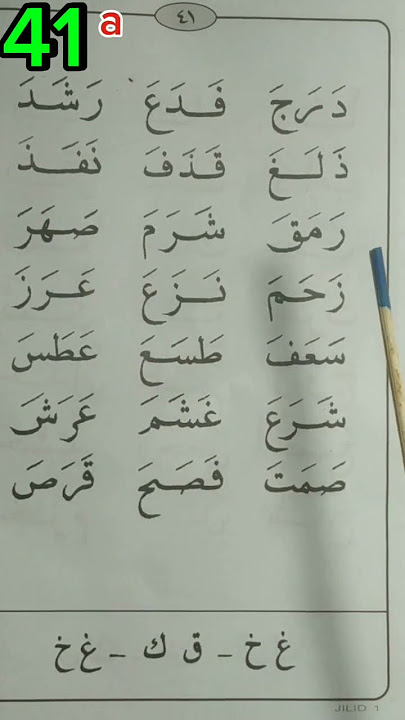 41 a
٤١
دَرَجَ فَدَعَ رَشَدَ
ذَلَغَ قَذَفَ نَفَذَ
رَمَقَ شَرَمَ صَهَرَ
زَحَمَ نَزَعَ عَرَزَ
سَعَفَ طَسَعَ عَطَسَ
شَرَعَ غَشَمَ عَرَشَ
صَمَتَ فَصَحَ قَرَصَ
غ خ - ق ك - غ خ
JILID 1